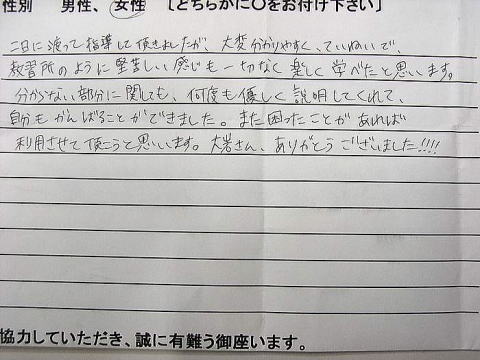 性別　男性、女性　【どちらかに〇をお付け下さい】
二日に渡って指導して頂きましたが、大変分かりやすく、ていねいで、
教習所のように堅苦しい感じも一切なく楽しく学べたと思います。
分からない部分に関しても、何度も優しく説明してくれて、
自分もがんばることができました。また困ったことがあれば
利用させて頂こうと思います。大岩さん、ありがとうございました!!!!
協力していただき、誠に有難う御座います。